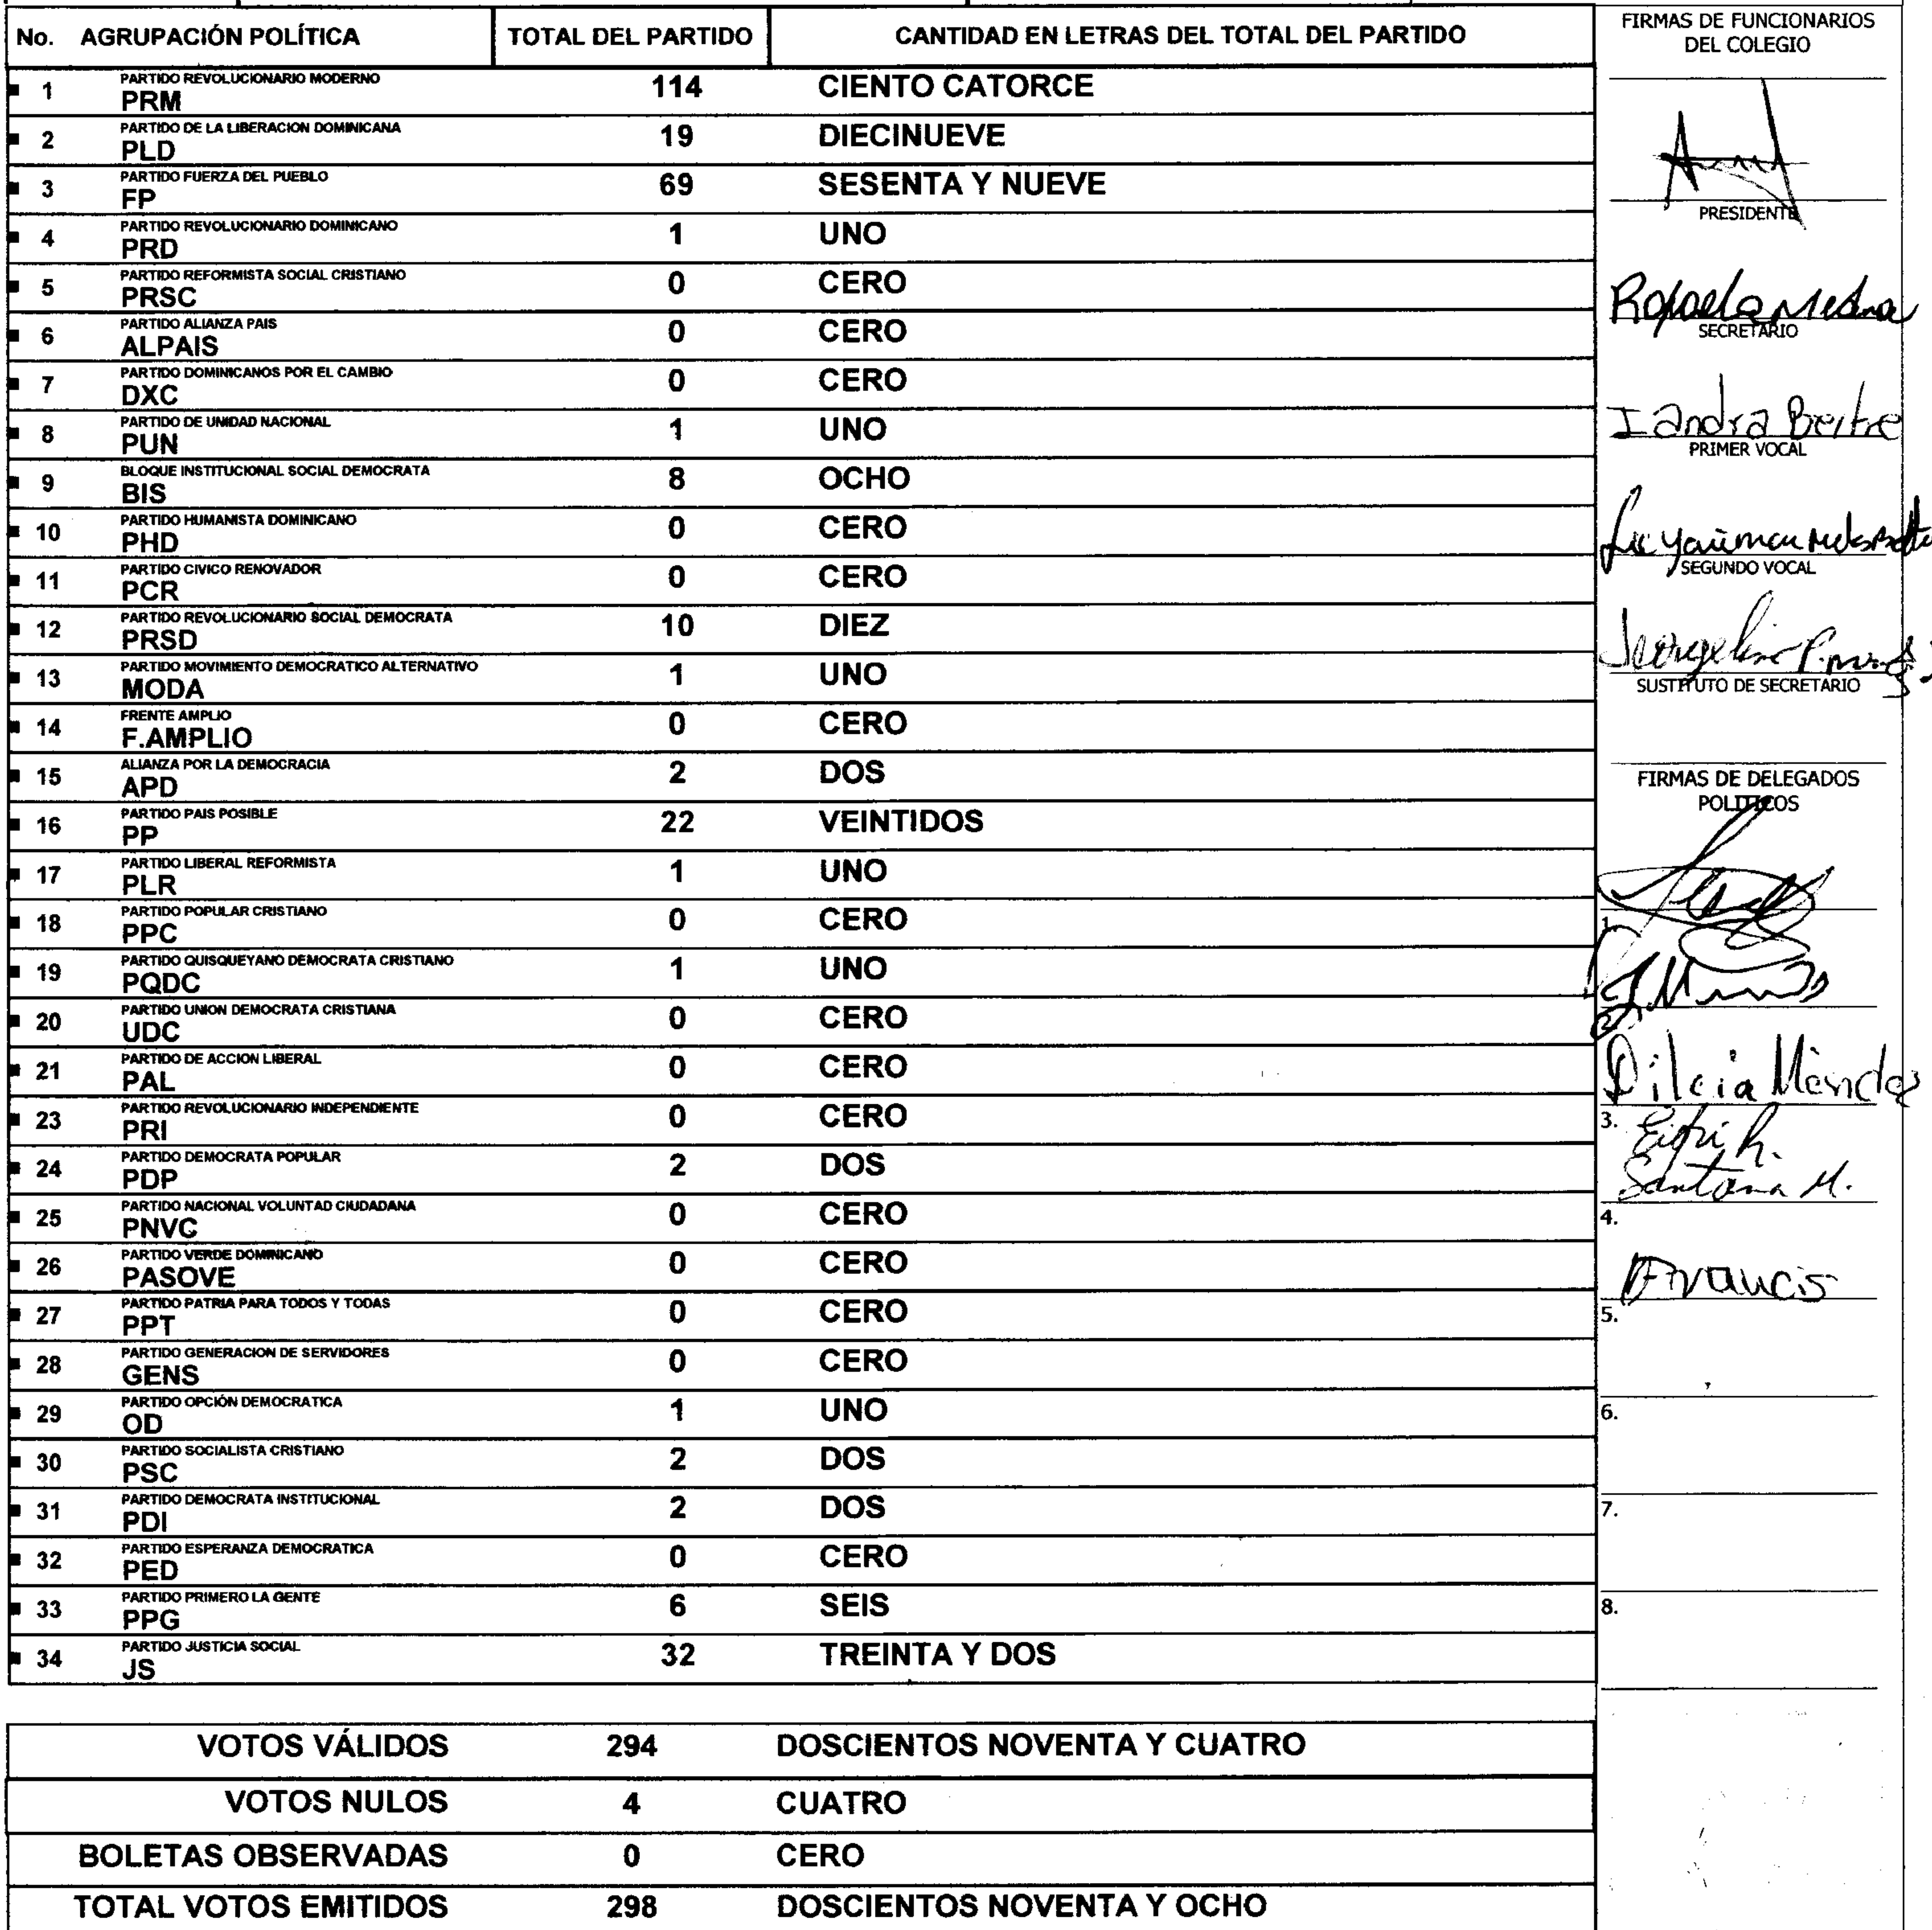 No. AGRUPACIÓN POLÍTICA TOTAL DEL PARTIDO CANTIDAD EN LETRAS DEL TOTAL DEL PARTIDO
PARTIDO REVOLUCIONARIO MODERNO
1 PRM 114 CIENTO CATORCE
PARTIDO DE LA LIBERACION DOMINICANA
2 PLD 19 DIECINUEVE
PARTIDO FUERZA DEL PUEBLO
3 FP 69 SESENTA Y NUEVE
PARTIDO REVOLUCIONARIO DOMINICANO
4 PRD 1 UNO
PARTIDO REFORMISTA SOCIAL CRISTIANO
5 PRSC 0 CERO
PARTIDO ALIANZA PAIS
6 ALPAIS 0 CERO
PARTIDO DOMINICANOS POR EL CAMBIO
7 DXC 0 CERO
PARTIDO DE UNIDAD NACIONAL
8 PUN 1 UNO
BLOQUE INSTITUCIONAL SOCIAL DEMOCRATA
9 BIS 8 OCHO
PARTIDO HUMANISTA DOMINICANO
10 PHD 0 CERO
PARTIDO CIVICO RENOVADOR
11 PCR 0 CERO
PARTIDO REVOLUCIONARIO SOCIAL DEMOCRATA
12 PRSD 10 DIEZ
PARTIDO MOVIMIENTO DEMOCRATICO ALTERNATIVO
13 MODA 1 UNO
FRENTE AMPLIO
14 F.AMPLIO 0 CERO
ALIANZA POR LA DEMOCRACIA
15 APD 2 DOS
PARTIDO PAIS POSIBLE
16 PP 22 VEINTIDOS
PARTIDO LIBERAL REFORMISTA
17 PLR 1 UNO
PARTIDO POPULAR CRISTIANO
18 PPC 0 CERO
PARTIDO QUISQUEYANO DEMOCRATA CRISTIANO
19 PQDC 1 UNO
PARTIDO UNION DEMOCRATA CRISTIANA
20 UDC 0 CERO
PARTIDO DE ACCION LIBERAL
21 PAL 0 CERO
PARTIDO REVOLUCIONARIO INDEPENDIENTE
23 PRI 0 CERO
PARTIDO DEMOCRATA POPULAR
24 PDP 2 DOS
PARTIDO NACIONAL VOLUNTAD CIUDADANA
25 PNVC 0 CERO
PARTIDO VERDE DOMINICANO
26 PASOVE 0 CERO
PARTIDO PATRIA PARA TODOS Y TODAS
27 PPT 0 CERO
PARTIDO GENERACION DE SERVIDORES
28 GENS 0 CERO
PARTIDO OPCIÓN DEMOCRATICA
29 OD 1 UNO
PARTIDO SOCIALISTA CRISTIANO
30 PSC 2 DOS
PARTIDO DEMOCRATA INSTITUCIONAL
31 PDI 2 DOS
PARTIDO ESPERANZA DEMOCRATICA
32 PED 0 CERO
PARTIDO PRIMERO LA GENTE
33 PPG 6 SEIS
PARTIDO JUSTICIA SOCIAL
34 JS 32 TREINTA Y DOS
VOTOS VÁLIDOS 294 DOSCIENTOS NOVENTA Y CUATRO
VOTOS NULOS 4 CUATRO
BOLETAS OBSERVADAS 0 CERO
TOTAL VOTOS EMITIDOS 298 DOSCIENTOS NOVENTA Y OCHO
FIRMAS DE FUNCIONARIOS
DEL COLEGIO
PRESIDENTE
Rafaela Medina
SECRETARIO
Iandra Beitre
PRIMER VOCAL
SEGUNDO VOCAL
SUSTITUTO DE SECRETARIO
FIRMAS DE DELEGADOS
POLITICOS
1.
2.
Dilcia Méndez
3.
Santana M.
4.
Francis
5.
6.
7.
8.